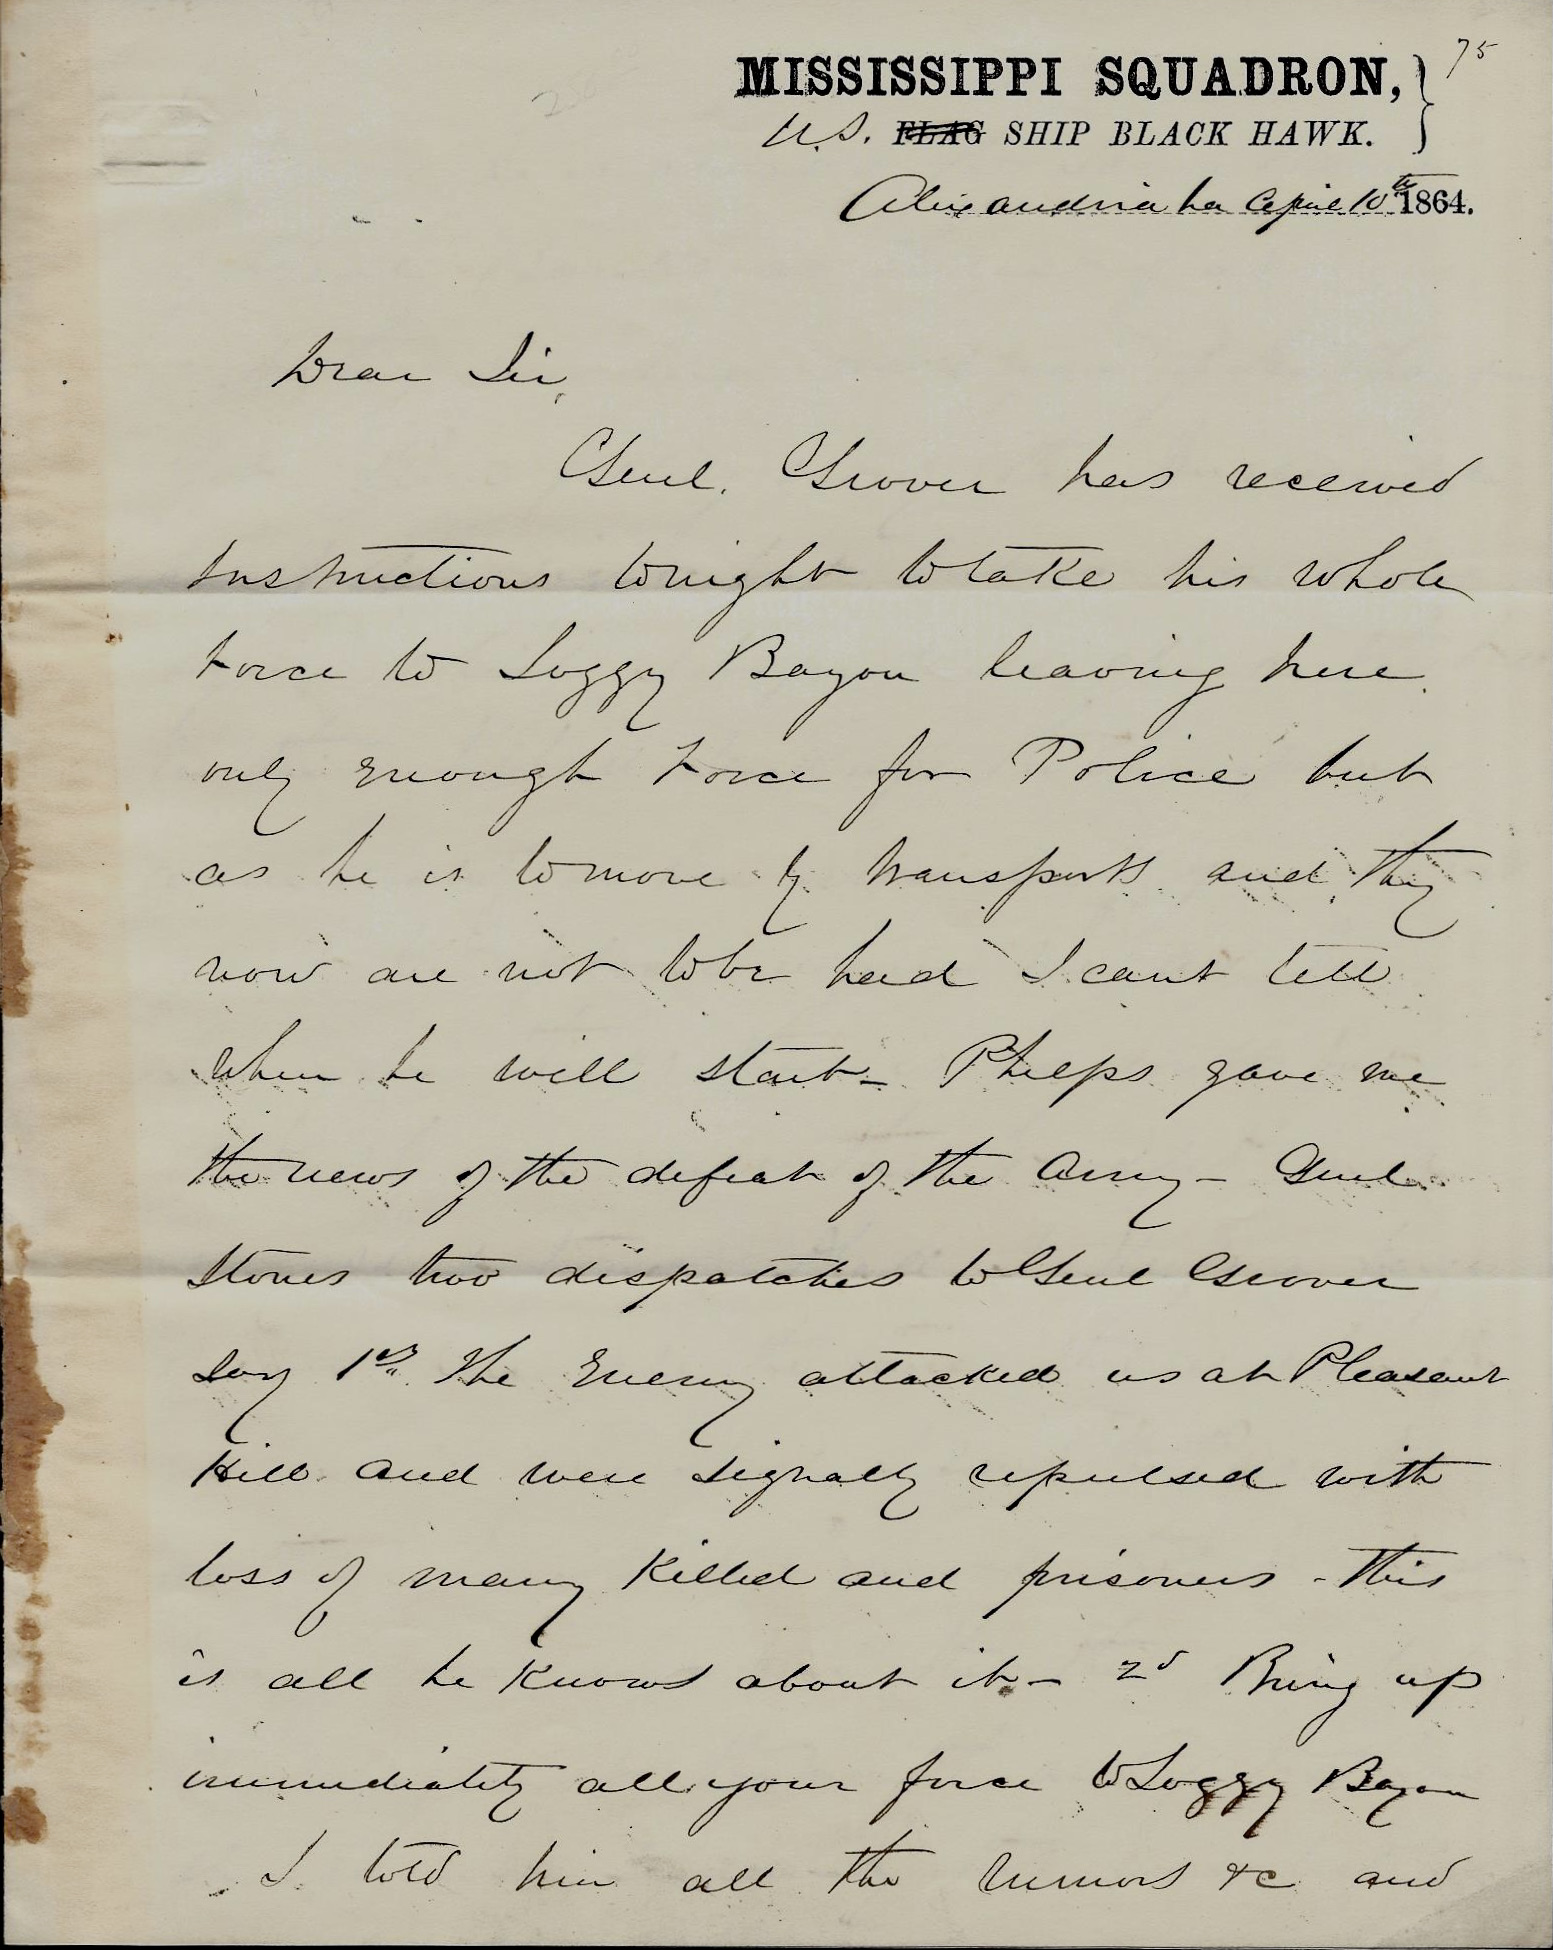 75
MISSISSIPPI SQUADRON,
U.S. FLAG SHIP BLACK HAWK.
Alexandria La April 10th 1864.
Dear Sir,
Genl. Grover has received
Instructions tonight to take his whole
Force to Loggy Bayou leaving here
only enough Force for Police but
as he is to move by transports and they
now are not to be had I cant tell
when he will start – Phelps gave me
the news of the defeat of the Army – Genl
Stones two dispatches to Genl Grover
say 1st The Enemy attacked us at Pleasant
Hill and were signally repulsed with
loss of many Killed and prisoners – This
is all he Knows about it – 2d Bring up
immediately all your force to Loggy Bayou
I told him all the rumors &c and